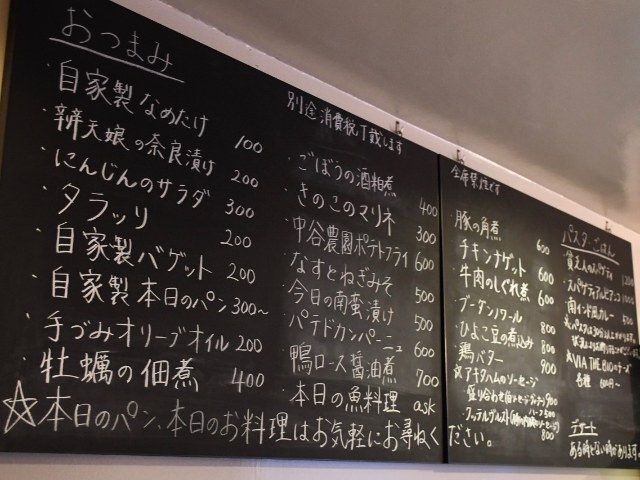 おつまみ
・自家製なめたけ 100
・辨天娘の奈良漬け 200
・にんじんのサラダ 300
・タラッリ 200
・自家製バゲット 200
・自家製本日のパン 300～
・手づみオリーブオイル 200
・牡蠣の佃煮 400
☆本日のパン、本日のお料理はお気軽にお尋ねください。
別途消費税頂戴します
・ごぼうの酒粕煮 400
・きのこのマリネ 300
・中谷農園ポテトフライ 600
・なすとねぎみそ 500
・今日の南蛮漬け 500
・パテドカンパーニュ 600
・鴨ロース醤油煮 700
・本日の魚料理 ask
全席禁煙です
・豚の角煮 600
・チキンナゲット 600
・牛肉のしぐれ煮 600
・ブーダンノワール 800
・ひよこ豆の煮込み 800
・鶏バター 900
☆アキタハムのソーセージ
盛り合わせ
800
パスタ・ごはん
・貧乏人のスパゲティ
・南インド風カレー
☆VIA THE BIOのチーズ
各種
デザート
ある時とない時があります。